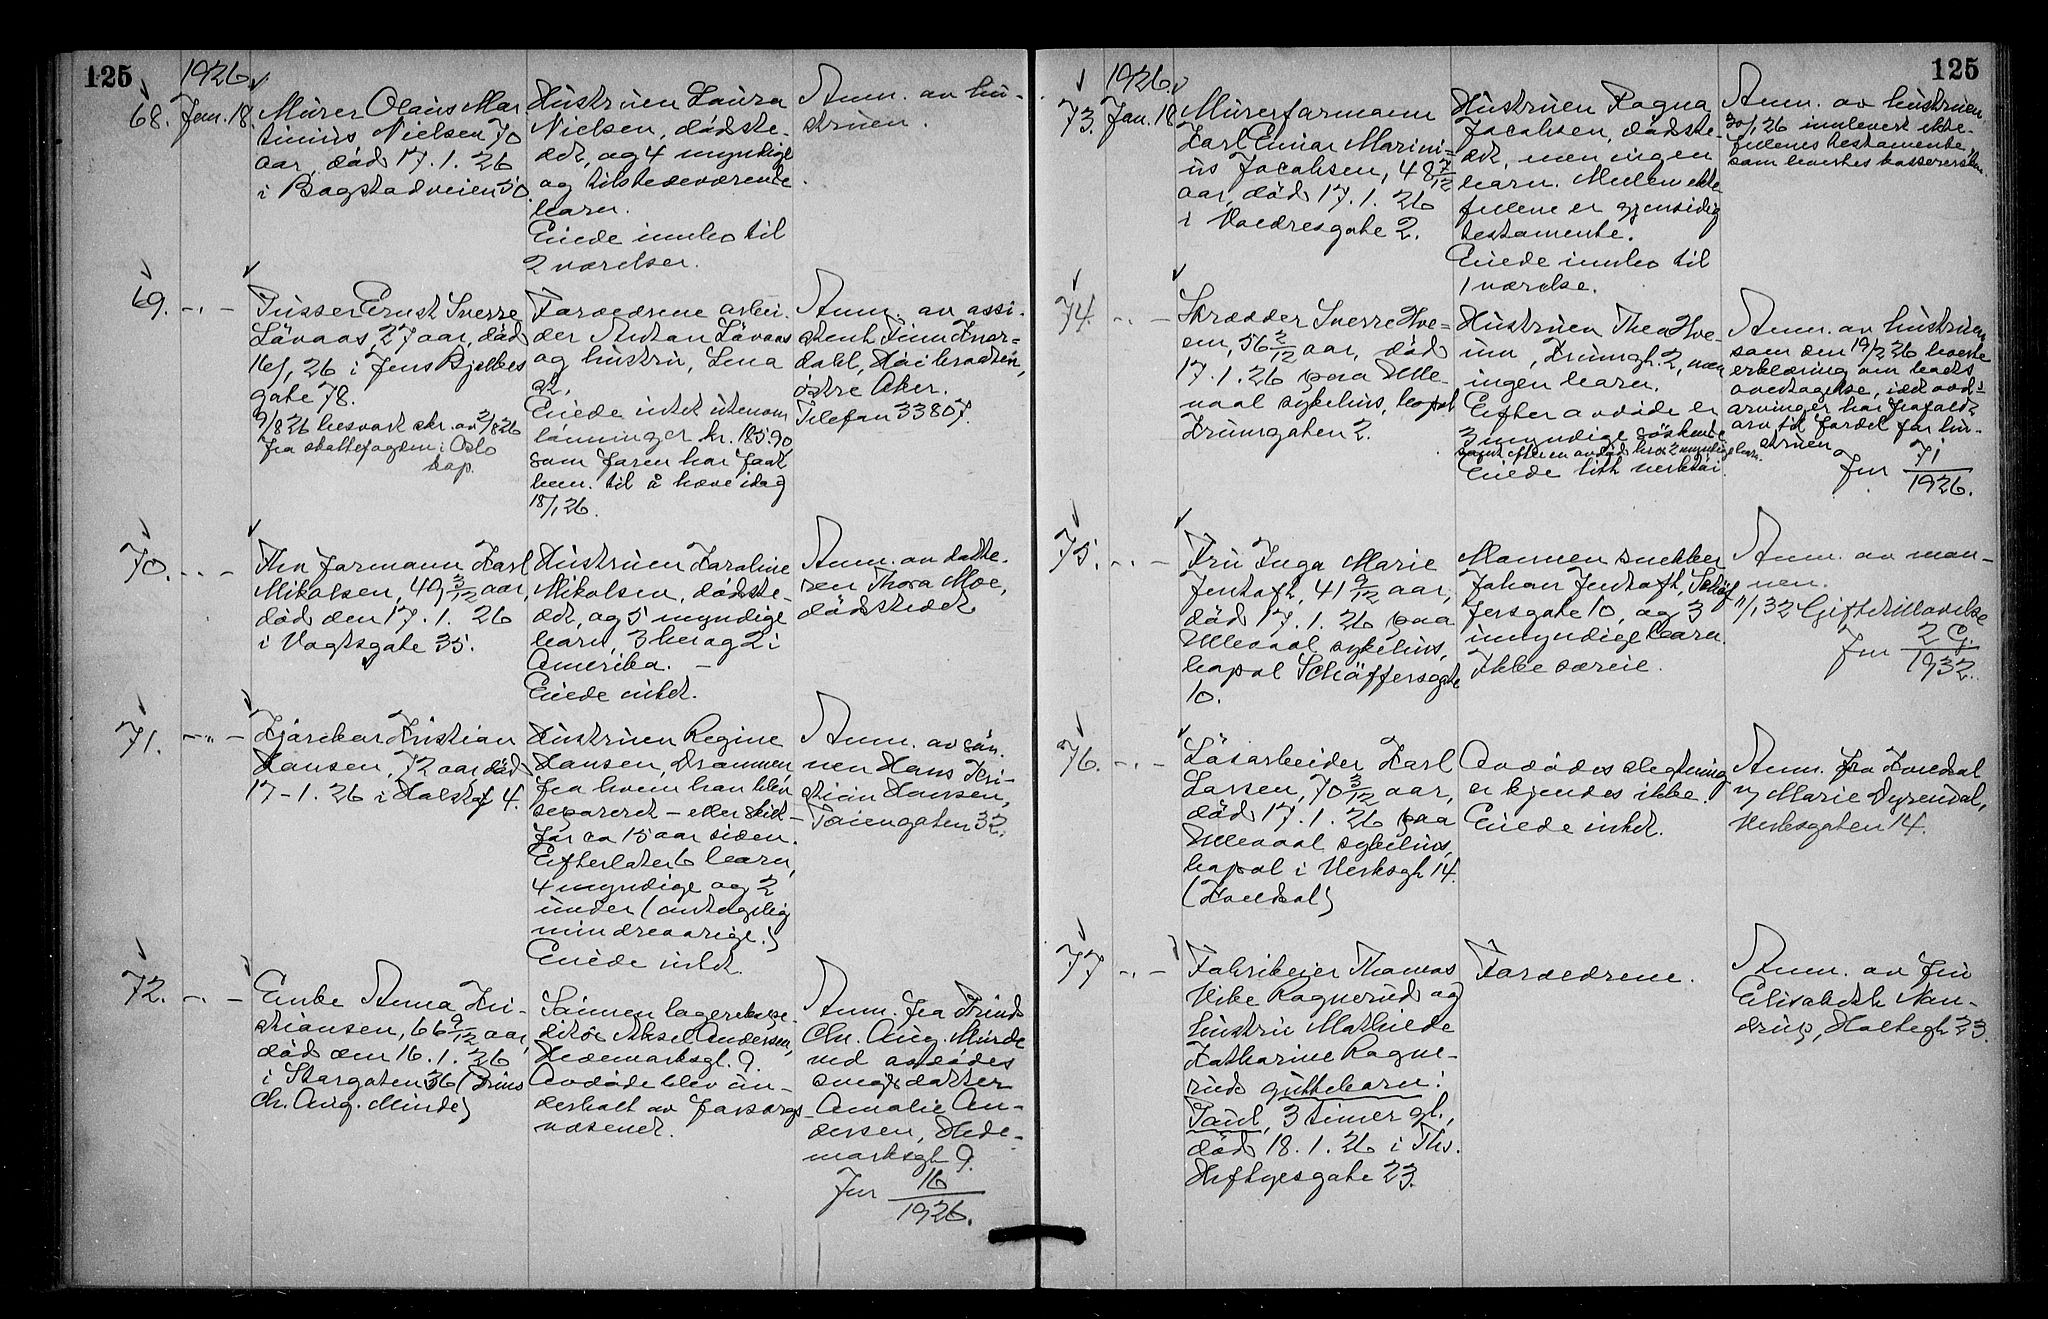 125
1926
68. Jan. 18.
Murer Olaus Mar
tinius Nielsen 70
aar, död 17.1.26
i Bogstadveien 50.
Hustruen Laura
Nielsen, dödste-
det, og 4 myndige
og tilstedeværende
barn.
Eiede innbo til
2 værelser.
Anm. av hu-
struen.
69. -"-
Pusser Ernst Sverre
Lövaas, 27 aar, död
16/1 26 i Jens Bjelkes
gate 78.
9/8 26 besvart skr. av 2/8 26
fra skattefogden i Oslo
Forældrene arbei-
der Anton Lövaas
og hustru, Lena
Eiede intet utenom
lönninger kr. 185.90
som faren har faat
bem. til å hæve idag
18/1 26.
Anm. av assi-
stent Finn
östre Aker.
Telefon 33807.
70. -"-
Thv formann Karl
Mikalsen, 49 3/12 aar,
död den 17.1.26
i Vogtsgate 35.
Hustruen Karoline
Mikalsen, dödste-
det, og 5 myndige
barn, 3 her og 2 i
Amerika. -
Eiede intet.
Anm. av datte-
ren Thora Moe,
dödstedet
71. -"-
Kjörekar Kristian
Hansen, 72 aar, död
17-1.26 i Holstgt 4.
Hustruen Regine
Hansen, Drammen,
fra hvem han blev
separeret - eller skilt -
for ca 15 aar siden.
Efterlater 6 barn,
4 myndige og 2
under (antagelig
mindreaarige.)
Eiede intet.
Anm. av sön-
nen Hans Kri-
stian Hansen,
Töiengaten 32.
72. -"-
Enke Anna Kri-
stiansen, 66 9/12 aar,
död den 16.1.26
i Storgaten 36 (Prins
Ch. Aug. Minde)
Sönnen lagerekspe-
ditör Aksel Andersen,
Hedemarksgt. 9.
Avdöde blev un-
derholt av forsorgs-
væsenet.
Anm. fra Prinds
Chr. Aug. Minde
ved avdödes
svigerdatter
Amalie An-
dersen, Hede-
marksgt 9.
Jnr 16/1926.
125
1926
73. Jan. 18
Murerformann
Karl Einar Marini-
us Jacobsen, 48 7/12
aar, död 17.1.26
i Valdresgate 2.
Hustruen Ragna
Jacobsen, dödste-
det, men ingen
barn. Mellem ekte-
fellene er gjensidig
testamente.
Eiede innbo til
1 værelse.
Anm. av hustruen,
30/1 26 innlevert ekte-
fellenes testamente,
som levertes kassererske.
74. -"-
Skrædder Sverre Hve-
em, 56 2/12 aar, död
17.1.26 paa Ulle-
vaal sykehus, bopæl
Krumgaten 2.
Hustruen Thea Hve-
em, Krumgt. 2, men
ingen barn.
Efter avdöde er
3 myndige söskende
samt efter en avdöd bror 2 myndige barn.
Eiede litt verktöi
Anm. av hustruen
som den 19/2 26 leverte
erklæring om boets
overtagelse, idet avd's
arvinger har frafaldt
arv til fordel for hu-
struen
Jnr 71/1926.
75. -"-
Fru Inga Marie
Jentoft, 41 9/12 aar,
död 17.1.26 paa
Ullevaal sykehus,
bopæl Schäffersgate
10.
Mannen snekker
Johan Jentoft, Schäf-
fersgate 10, og 3
umyndige barn.
Ikke særeie.
Anm. av man-
nen.
11/1 32 Giftetillatelse
Jnr 2 G./1932.
76. -"-
Lösarbeider Karl
Larsen, 70 3/12 aar,
död 17.1.26 paa
Ullevaal sykehus,
bopæl i Verksgt 14.
(Kværndal)
Avdödes slegtning-
er kjendes ikke.
Eiede intet.
Anm. fra
v/ Marie Dyrendal,
Verksgaten 14.
77 -"-
Fabrikeier Thomas
Vibe Ragnerud og
hustru Mathilde
Katharine Ragne-
ruds guttebarn:
Paul, 3 timer gl.,
död 18.1.26 i Thv.
Heftyesgate 23.
Forældrene.
Anm. av fru
Elisabeth Nan-
drup, Holtegt 23.